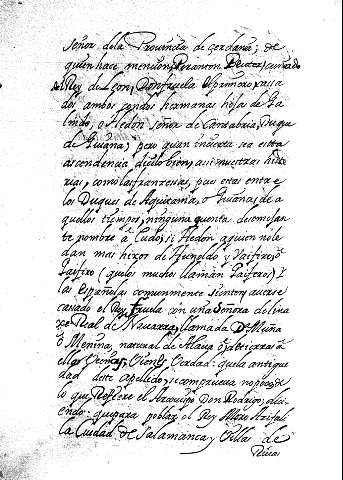 señor dela Provincia de Cerdania; de
quien hace mencion, Peranton Beuter, cuñado
del Rey de Leon, Don fruela el primero, casa
dos ambos condos hermanas hijas de Ga
lindo, o Hedon señor de Cantabria, Duque
de Guiana; pero quan incierta sea esta
ascendencia dicelo bien, asi nuestras histo
rias, como las francesas, pues estas entre
los Duques de Aquitania, o Guiana, de a
quellos tiempos, ninguna quenta de semejan
te nombre a Eudo, ni Hedon aquien no le
dan mas hixos de Hunoldo y Vaifiro, o
Gaifiro (que los muchos llaman Gaiferos) I
las Españolas comunmente sienten, averse
casado el Rey fruela con una Señora de lina
xe Real de Navarra, llamada Dª Munia
o Menina, natural de Alava
ellos Verdad: que la antigue
dad deste Apellido, se comprueva no poco, de
lo que Refiere el Arzobispo Don Rodrigo; dici
endo: que para poblar el Rey
la Ciudad de Salamanca y Villas de